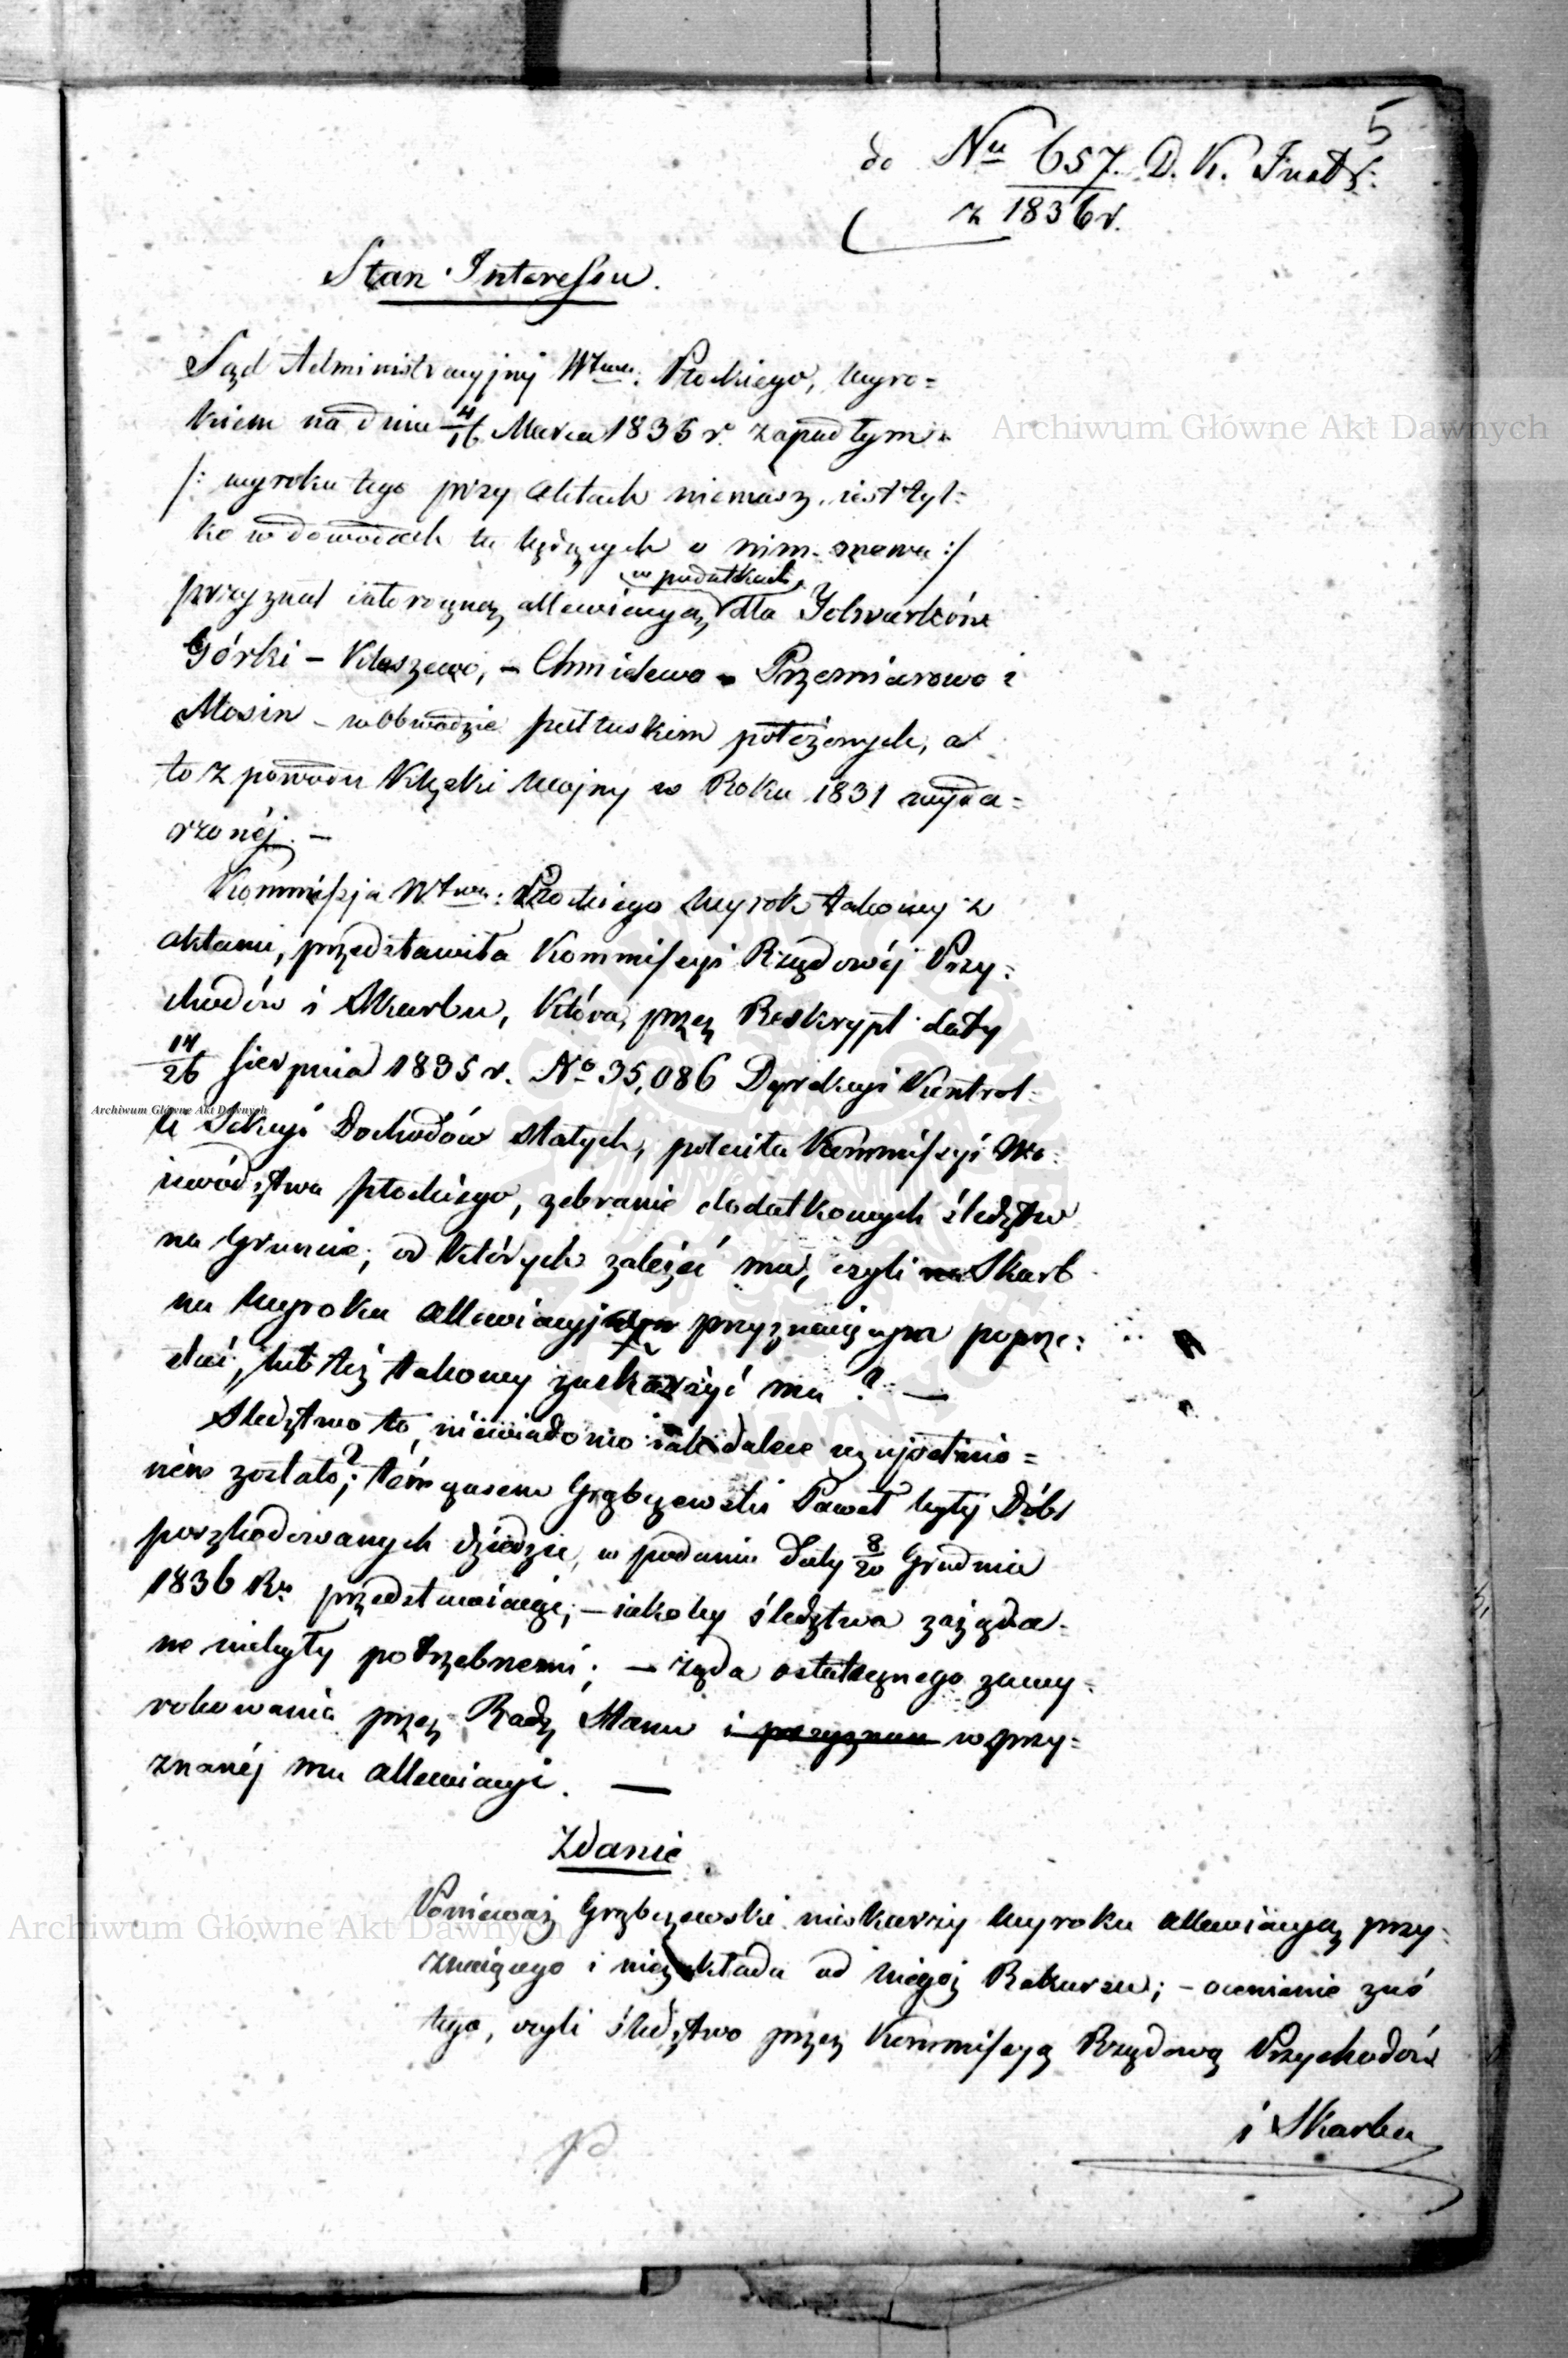 5
do Nu 657. D. K.
z 1836 r.
Stan Interessu.
Sąd Administracyjny Wtwa: Płockiego, wyro=
kiem na dniu 4/16 Marca 1835 r. zapadłym
/: wyroku tego przy aktach niemasz, iest tyl=
ko w dowodach tu będących o nim mowa :/
przyznał całoroczną allewiacyą w podatkach dla Folwarków
Górki – Kleszewo, – Chmielewo – Przemiarowo i
Mosin – w Obwodzie pułtuskim położonych, a
to z powodu klęski wojny w Roku 1831 wyda=
rzonéj. –
Kommissja Wtwa: Płockiego wyrok takowy z
aktami, przedstawiła Kommissyi Rządowéj Przy=
chodów i Skarbu, która, przez Reskrypt daty
14/26 sierpnia 1835 r. No 35,086 Dyrekcyi Kontrol=
li Sekcyi Dochodów stałych, poleciła Kommissyi Wo=
iewództwa płockiego, zebranie dodatkowych śledztw
na Gruncie, od których zależeć ma, czyli na Skarb
na wyroku allewiacyą przyznaiącym poprze=
stać, lub też takowy zaskarżyć ma? —
Śledztwo to, niewiadomo iak dalece uzupełnio=
ném zostało?; tém czasem Grąbczewski Paweł byłych Dóbr
poszkodowanych dziedzic, w podaniu daty 8/20 Grudnia
1836 Ru przedstawiaiąc, – iakoby śledztwa zażąda=
ne niebyły potrzebnemi; – żąda ostatecznego zawy=
rokowania przez Radę Stanu i przyznan w przy=
znanéj mu allewiacyi. —
Zdanie
Ponieważ Grąbczewski nieskarży wyroku allewiacyą przy=
znaiącego i niezakłada od niegoż Rekursu; – ocenienie zaś
tego, czyli śledztwo przez Kommissyą Rządową Przychodów
i Skarbu
Archiwum Główne Akt Dawnych
Archiwum Główne Akt Dawnych
Archiwum Główne Akt Dawnych